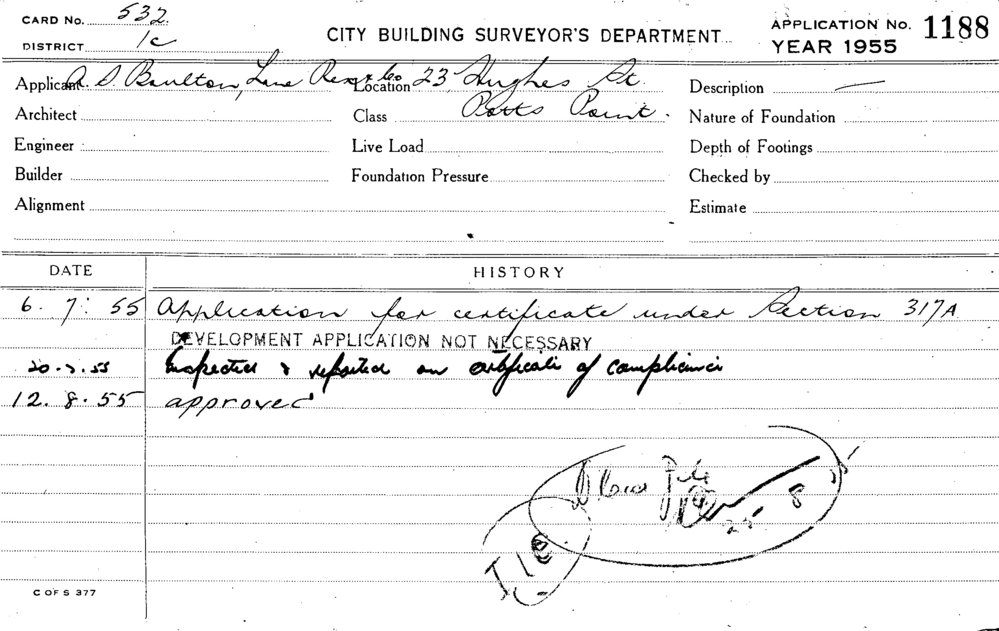 CARD No. 532
DISTRICT 1c
CITY BUILDING SURVEYOR'S DEPARTMENT
APPLICATION No. 1188
YEAR 1955
Applicant A. S. Boulton, Lane Rex & Co Location 23, Hughes St. Description —
Architect Class Potts Point. Nature of Foundation
Engineer Live Load Depth of Footings
Builder Foundation Pressure Checked by
Alignment Estimate
DATE HISTORY
6. 7. 55 Application for certificate under Section 317A
DEVELOPMENT APPLICATION NOT NECESSARY
20.7.55 Inspected & reported on certificate of compliance
12. 8. 55 approved
25 8 55
C OF S 377